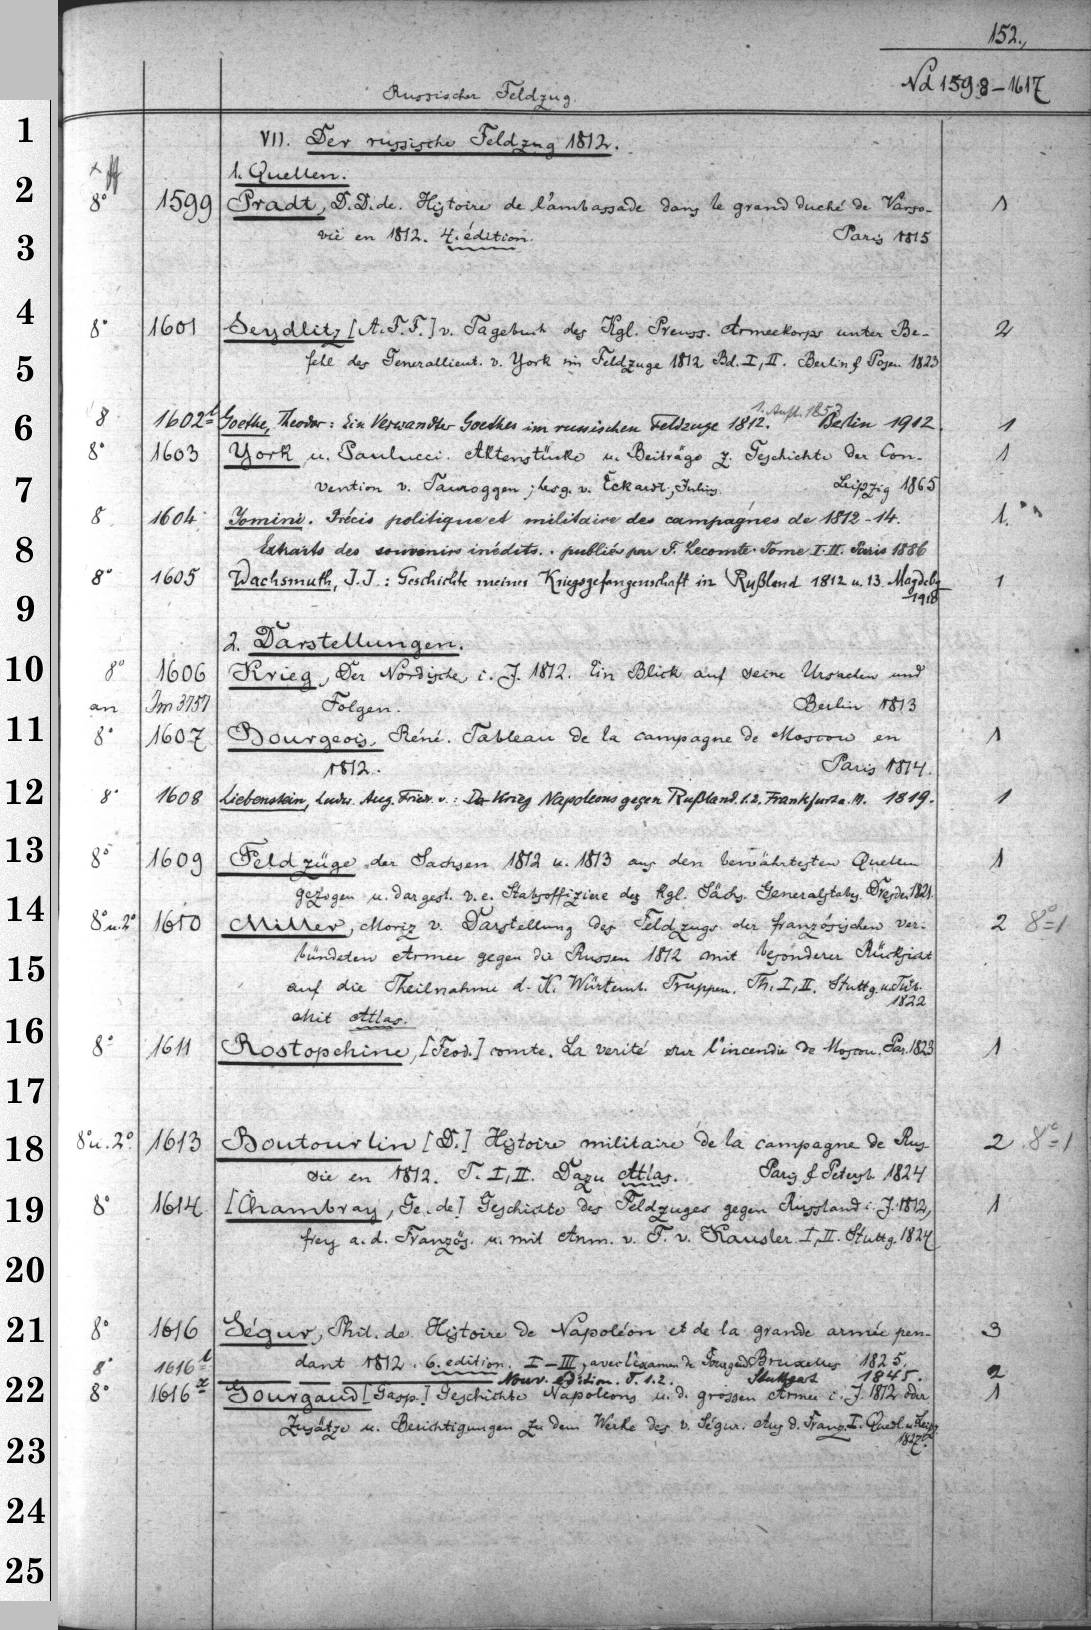 152.,
Nd 1598-1617
Russischer Feldzug.
1
VII. Der russische Feldzug 1812.
1. Quellen.
2
8° 1599 Pradt, D.D. de. Histoire de l'ambassade dans le grand duché de Varso- 1
3
vie en 1812. 4. édition. Paris 1815
4
8° 1601 Seydlitz [A.F.F.] v. Tagebuch des Kgl. Preuss. Armeekorps unter Be- 2
5
fehl des Generallieut. v. York im Feldzuge 1812 Bd. I, II. Berlin & Posen 1823
1. Aufl. 1853
6
8 1602 b Goethe, Theodor: Ein Verwandter Goethes im russischen Feldzuge 1812. Berlin 1912. 1
8° 1603 York u. Paulucci. Aktenstücke u. Beiträge z. Geschichte der Con- 1
7
vention v. Tauroggen; hrsg. v. Eckardt, Julius. Leipzig 1865
8 1604 Jomini. Précis politique et militaire des campagnes de 1812-14. 1.
8
Extraits des souvenirs inédits.. publiés par F. Lecomte. Tome I. II. Paris 1886
8° 1605 Wachsmuth, J.J.: Geschichte meiner Kriegsgefangenschaft in Rußland 1812 u. 13. Magdebg 1
1910
9
2. Darstellungen.
10
8° 1606 Krieg, Der Nordische, i. J. 1812. Ein Blick auf seine Ursachen und
an Jm 3757 Folgen. Berlin 1813
11
8° 1607 Bourgeois, Réné. Tableau de la campagne de Moscou en 1
1812. Paris 1814.
12
8° 1608 Liebenstein, Ludw. Aug. Fried. v.: Der Krieg Napoleons gegen Rußland. 1.2. Frankfurt a. M. 1819. 1
13
8° 1609 Feldzüge der Sachsen 1812 u. 1813 aus den bewährtesten Quellen 1
gezogen u. dargest. v. e. Stabsoffiziere des Kgl. Sächs. Generalstabes. Dresden 1821.
14
8° u. 2° 1610 Miller, Moriz v. Darstellung des Feldzugs der französischen ver- 2 8°=1
15
bündeten Armee gegen die Russen 1812 mit besonderer Rücksicht
auf die Theilnahme d. K. Würtemb. Truppen. Th. I, II. Stuttg. u. Tüb.
1822
Mit Atlas.
16
8° 1611 Rostopchine, [Feod.] comte. La verité sur l'incendie de Moscou. Par. 1823 1
17
18
8° u. 2° 1613 Boutourlin [D.] Histoire militaire de la campagne de Rus- 2 8°=1
sie en 1812. T. I, II. Dazu Atlas. Paris & Petersb. 1824
19
8° 1614 [Chambray, Ge. de] Geschichte des Feldzuges gegen Russland i. J. 1812, 1
frey a. d. Französ. u. mit Anm. v. F. v. Kausler. I, II. Stuttg. 1824
20
21
8° 1616 Ségur, Phil. de. Histoire de Napoléon et de la grande armée pen- 3
dant 1812. 6. edition. I-III, avec l'examen de Gourgaud Bruxelles 1825.
8° 1616 b Nouv. édition. T. 1.2. Stuttgart 1845. 2
22
8° 1616 z Gourgaud [Gasp.] Geschichte Napoleons u. d. grossen Armee i. J. 1812 oder 1
Zusätze u. Berichtigungen zu dem Werke des v. Ségur. Aus d. Franz. I. Quedl. u. Leipz.
1827.
23
24
25